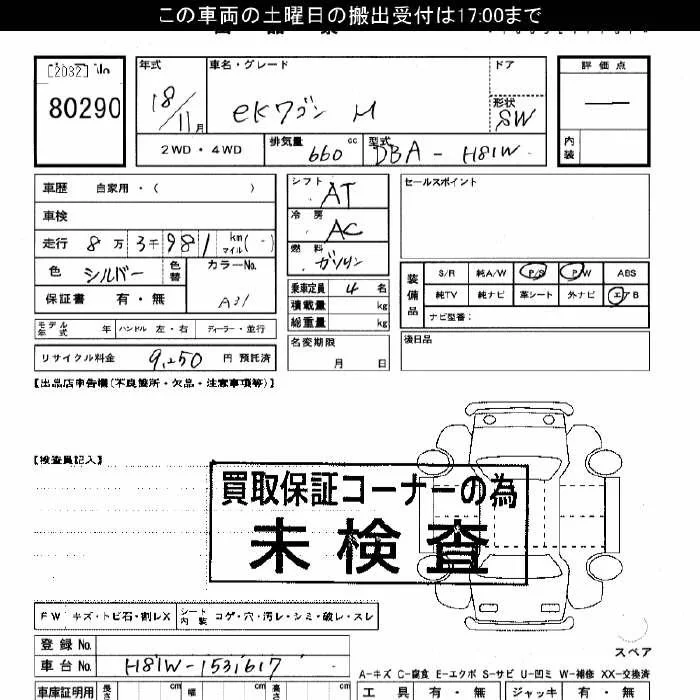 この車両の土曜日の搬出受付は17:00まで
[2032] No
80290
年式
18/11月
車名・グレード
eKワゴン M
ドア
形状
SW
評価点
内装
2WD・4WD
排気量 660 cc
型式 DBA - H81W
車歴 自家用・( )
車検
走行 8万3千981 km マイル(-)
色 シルバー 色替
カラーNo. A31
保証書 有・無
シフト AT
冷房 AC
燃料 ガソリン
乗車定員 4 名
積載量 kg
総重量 kg
名変期限 月 日
セールスポイント
装備品
S/R 純A/W P/S P/W ABS
純TV 純ナビ 革シート 外ナビ エアB
ナビ型番:
後日品
モデル年式 年 ハンドル 左・右 ディーラー・並行
リサイクル料金 9,250 円 預託済
【出品店申告欄(不良箇所・欠品・注意事項等)】
【検査員記入】
買取保証コーナーの為
未検査
FW キズ・トビ石・割レX シート内装 コゲ・穴・汚レ・シミ・破レ・スレ
登録No.
車台No. H81W-1531617
スペア
A-キズ C-腐食 E-エクボ S-サビ U-凹ミ W-補修 XX-交換済
車庫証明用 長さ cm 幅 cm cm
工具 有・無 ジャッキ 有・無